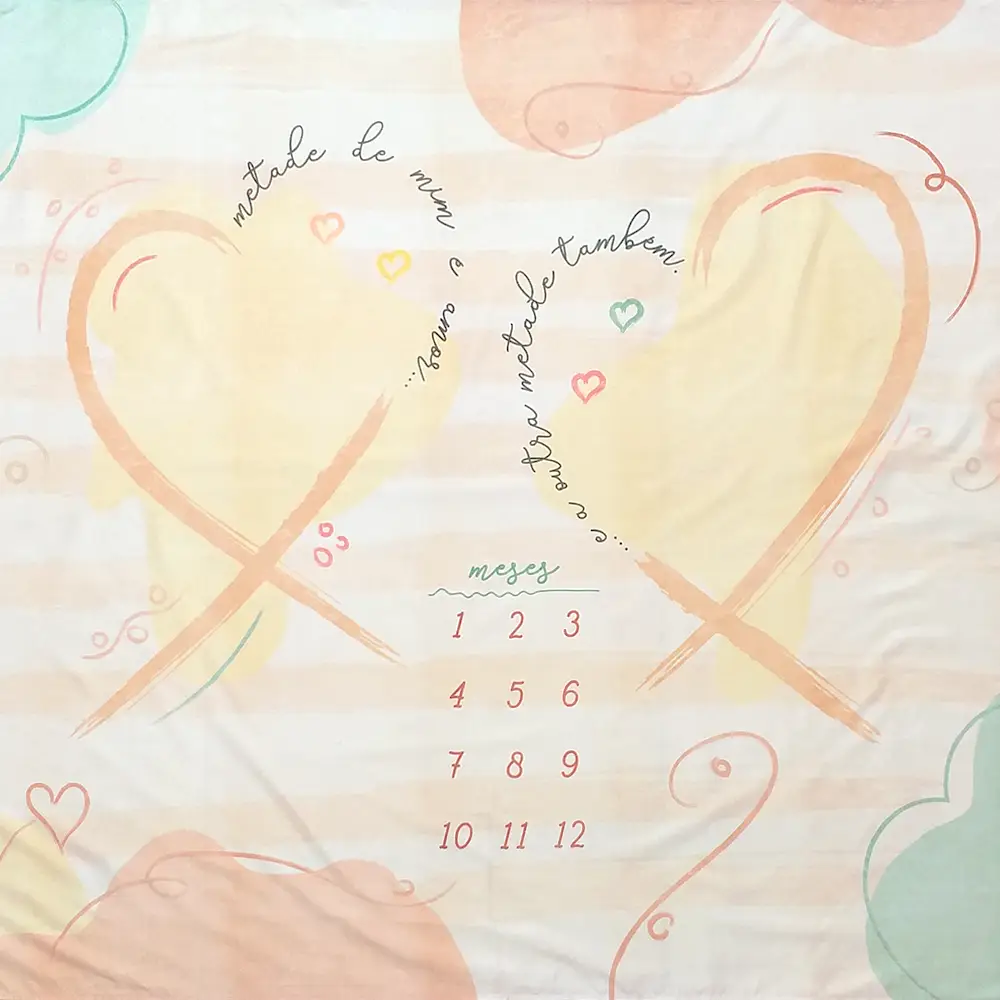 metade de mim é amor...
...e a outra metade também.
meses
1 2 3
4 5 6
7 8 9
10 11 12